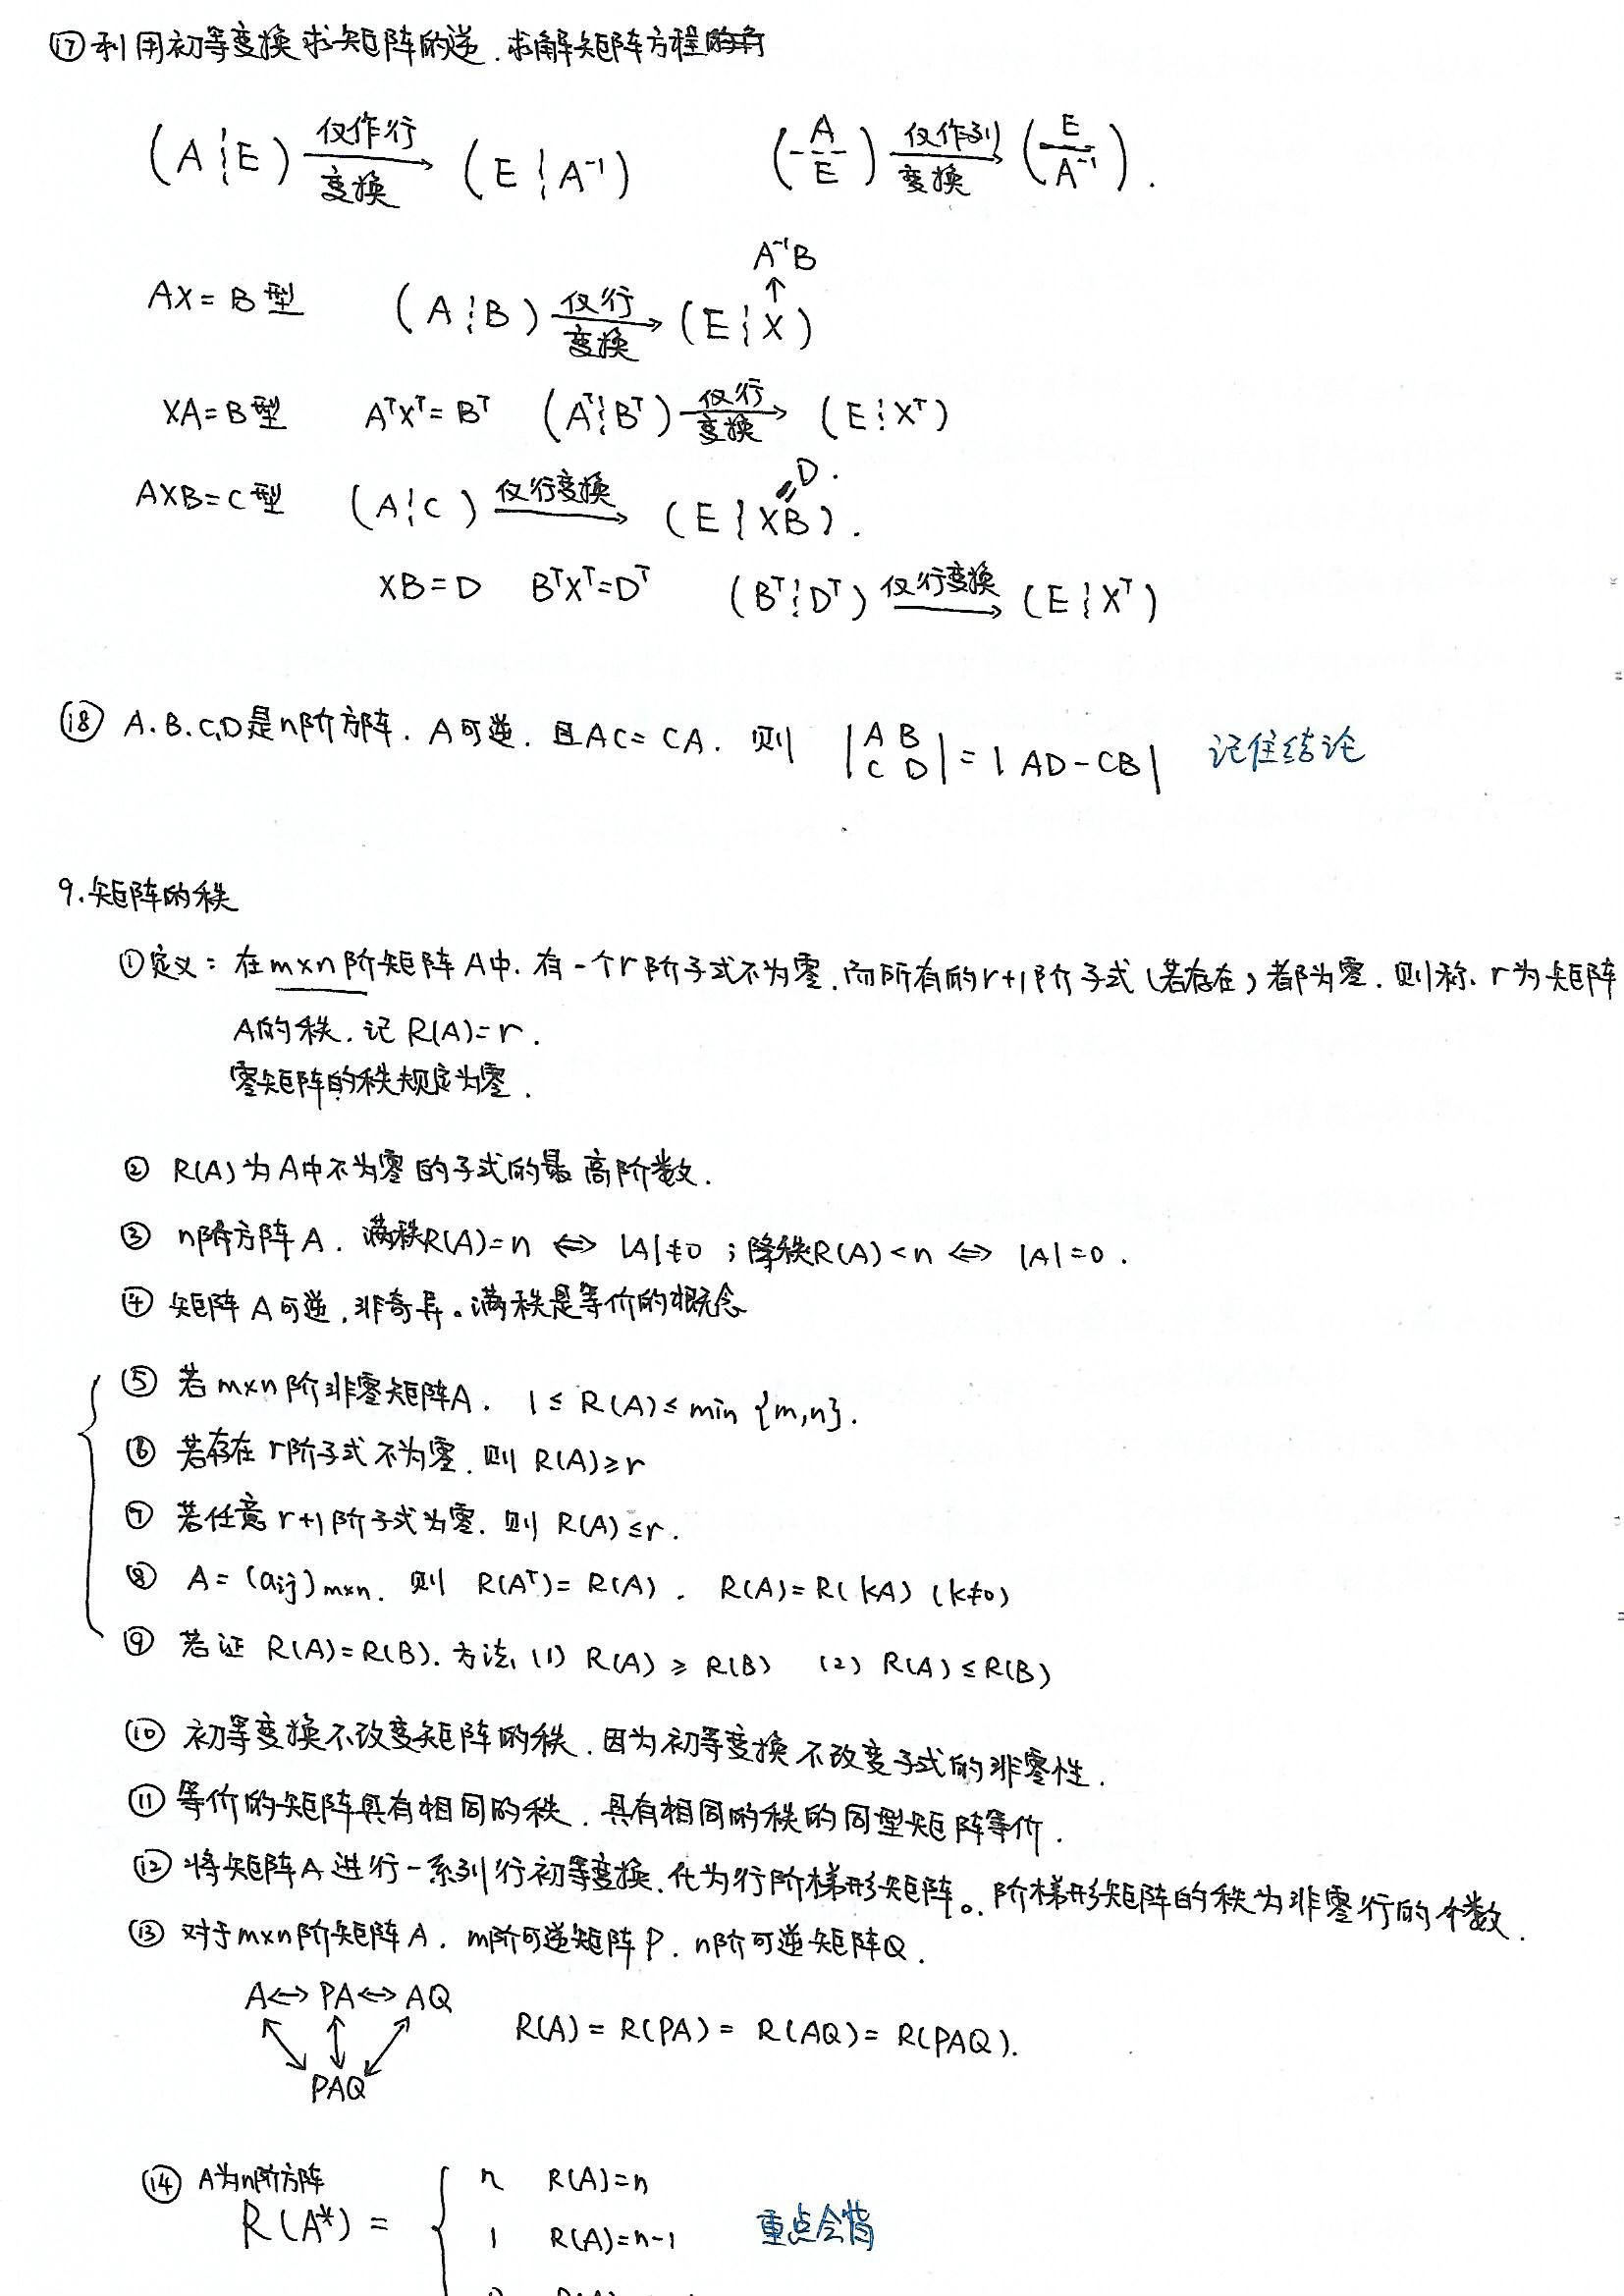 ⑰ 利用初等变换求矩阵的逆.求解矩阵方程
(A┆E) 仅作行变换→ (E┆A⁻¹)    (A/E) 仅作列变换→ (E/A⁻¹).
A⁻¹B
↑
AX=B型 (A┆B) 仅行变换→ (E┆X)
XA=B型 AᵀXᵀ=Bᵀ (Aᵀ┆Bᵀ) 仅行变换→ (E┆Xᵀ)
=D.
AXB=C型 (A┆C) 仅行变换→ (E┆XB).
XB=D BᵀXᵀ=Dᵀ (Bᵀ┆Dᵀ) 仅行变换→ (E┆Xᵀ)
⑱ A.B.C,D是n阶方阵.A可逆.且AC=CA.则 |A B / C D| = |AD-CB| 记住结论
9.矩阵的秩
①定义:在m×n阶矩阵A中.有一个r阶子式不为零.而所有的r+1阶子式(若存在)都为零.则称.r为矩阵
A的秩.记R(A)=r.
零矩阵的秩规定为零.
② R(A)为A中不为零的子式的最高阶数.
③ n阶方阵A.满秩R(A)=n ⇔ |A|≠0;降秩R(A)<n ⇔ |A|=0.
④ 矩阵A可逆,非奇异。满秩是等价的概念
⑤ 若m×n阶非零矩阵A. 1≤R(A)≤min{m,n}.
⑥ 若存在r阶子式不为零.则R(A)≥r
⑦ 若任意r+1阶子式为零.则R(A)≤r.
⑧ A=(aij)m×n.则 R(Aᵀ)=R(A). R(A)=R(kA) (k≠0)
⑨ 若证R(A)=R(B).方法,(1) R(A)≥R(B) (2) R(A)≤R(B)
⑩ 初等变换不改变矩阵的秩.因为初等变换不改变子式的非零性.
⑪ 等价的矩阵具有相同的秩.具有相同的秩的同型矩阵等价.
⑫ 将矩阵A进行一系列行初等变换.化为行阶梯形矩阵。阶梯形矩阵的秩为非零行的个数.
⑬ 对于m×n阶矩阵A.m阶可逆矩阵P.n阶可逆矩阵Q.
A⇔PA⇔AQ
R(A)=R(PA)=R(AQ)=R(PAQ).
PAQ
⑭ A为n阶方阵
n R(A)=n
R(A*)=
1 R(A)=n-1 重点会背